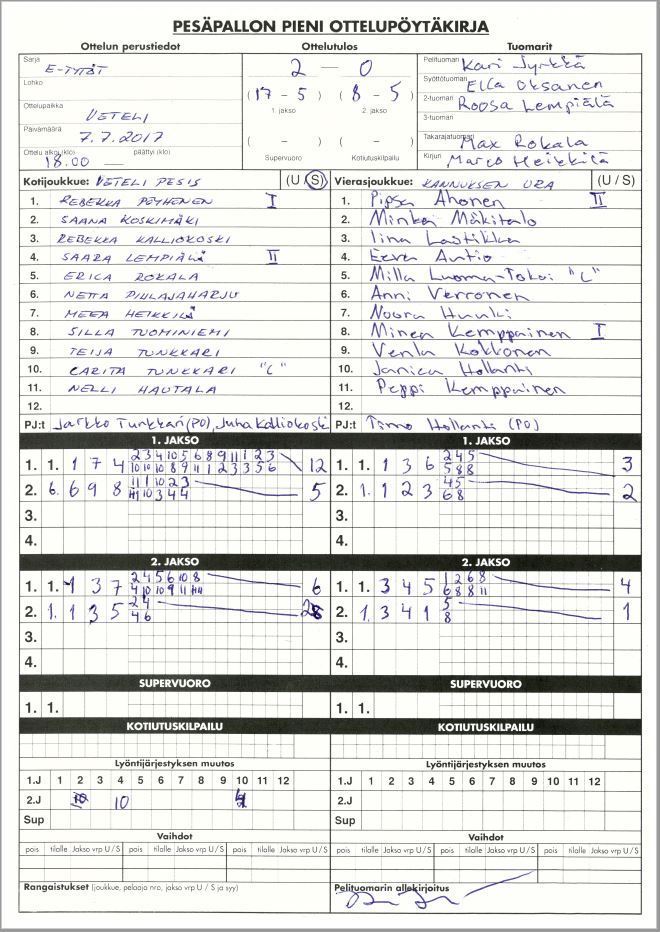 PESÄPALLON PIENI OTTELUPÖYTÄKIRJA
Ottelun perustiedot
Ottelutulos
Tuomarit
Sarja
E-TYTÖT
Lohko
Ottelupaikka
VETELI
Päivämäärä
7.7.2017
Ottelu alkoi (klo)
päättyi (klo)
18.00 —
2 — 0
(17 - 5) (8 - 5)
1. jakso 2. jakso
( - ) ( - )
Supervuoro Kotiutuskilpailu
Pelituomari Kari Jyrkkä
Syöttötuomari Ella Oksanen
2-tuomari Roosa Lempiälä
3-tuomari
Takarajatuomari Max Rokala
Kirjuri Marco Heikkilä
Kotijoukkue: VETELI PESIS (U / S)
1. REBEKKA PÖYHENEN I
2. SAANA KOSKIMÄKI
3. REBEKKA KALLIOKOSKI
4. SAARA LEMPIÄLÄ II
5. ERICA ROKALA
6. NETTA PIHLAJAHARJU
7. MEEA HEIKKILÄ
8. SILLA TUOMINIEMI
9. TEIJA TUNKKARI
10. CARITA TUNKKARI "C"
11. NELLI HAUTALA
12.
PJ:t Jarkko Tunkkari (PO), Juha Kalliokoski
Vierasjoukkue: KANNUKSEN URA (U / S)
1. Pipsa Ahonen II
2. Minka Mäkitalo
3. Iina Lastikka
4. Eeva Autio
5. Milla Luoma-Tokoi "C"
6. Anni Verronen
7. Noora Huuki
8. Minea Kemppainen I
9. Venla Kokkonen
10. Janica Hollanti
11. Peppi Kemppainen
12.
PJ:t Timo Hollanti (PO)
1. JAKSO
2 3 4 10 5 6 8 9 11 1 2 3
1. 1. 1 7 4 12
10 10 10 8 9 11 1 2 3 3 5 6
11 1 10 2 3
2. 6. 6 9 8 5
11 10 3 4 4
3.
4.
1. JAKSO
2 4 5
1. 1. 1 3 6 3
5 8 8
4 5
2. 1. 1 2 3 2
6 8
3.
4.
2. JAKSO
2 4 5 6 10 8
1. 1. 1 3 7 6
4 10 10 9 11 11
2 4
2. 1. 1 3 5 2
4 6
3.
4.
2. JAKSO
1 2 6 8
1. 1. 3 4 5 4
6 8 8 11
5
2. 1. 3 4 1 1
8
3.
4.
SUPERVUORO
1. 1.
SUPERVUORO
1. 1.
KOTIUTUSKILPAILU
KOTIUTUSKILPAILU
Lyöntijärjestyksen muutos
1.J 1 2 3 4 5 6 7 8 9 10 11 12
2.J 10 4
Sup
Lyöntijärjestyksen muutos
1.J 1 2 3 4 5 6 7 8 9 10 11 12
2.J
Sup
Vaihdot
pois tilalle Jakso vrp U / S pois tilalle Jakso vrp U / S pois tilalle Jakso vrp U / S
Vaihdot
pois tilalle Jakso vrp U / S pois tilalle Jakso vrp U / S pois tilalle Jakso vrp U / S
Rangaistukset (joukkue, pelaaja nro, jakso vrp U / S ja syy)
Pelituomarin allekirjoitus